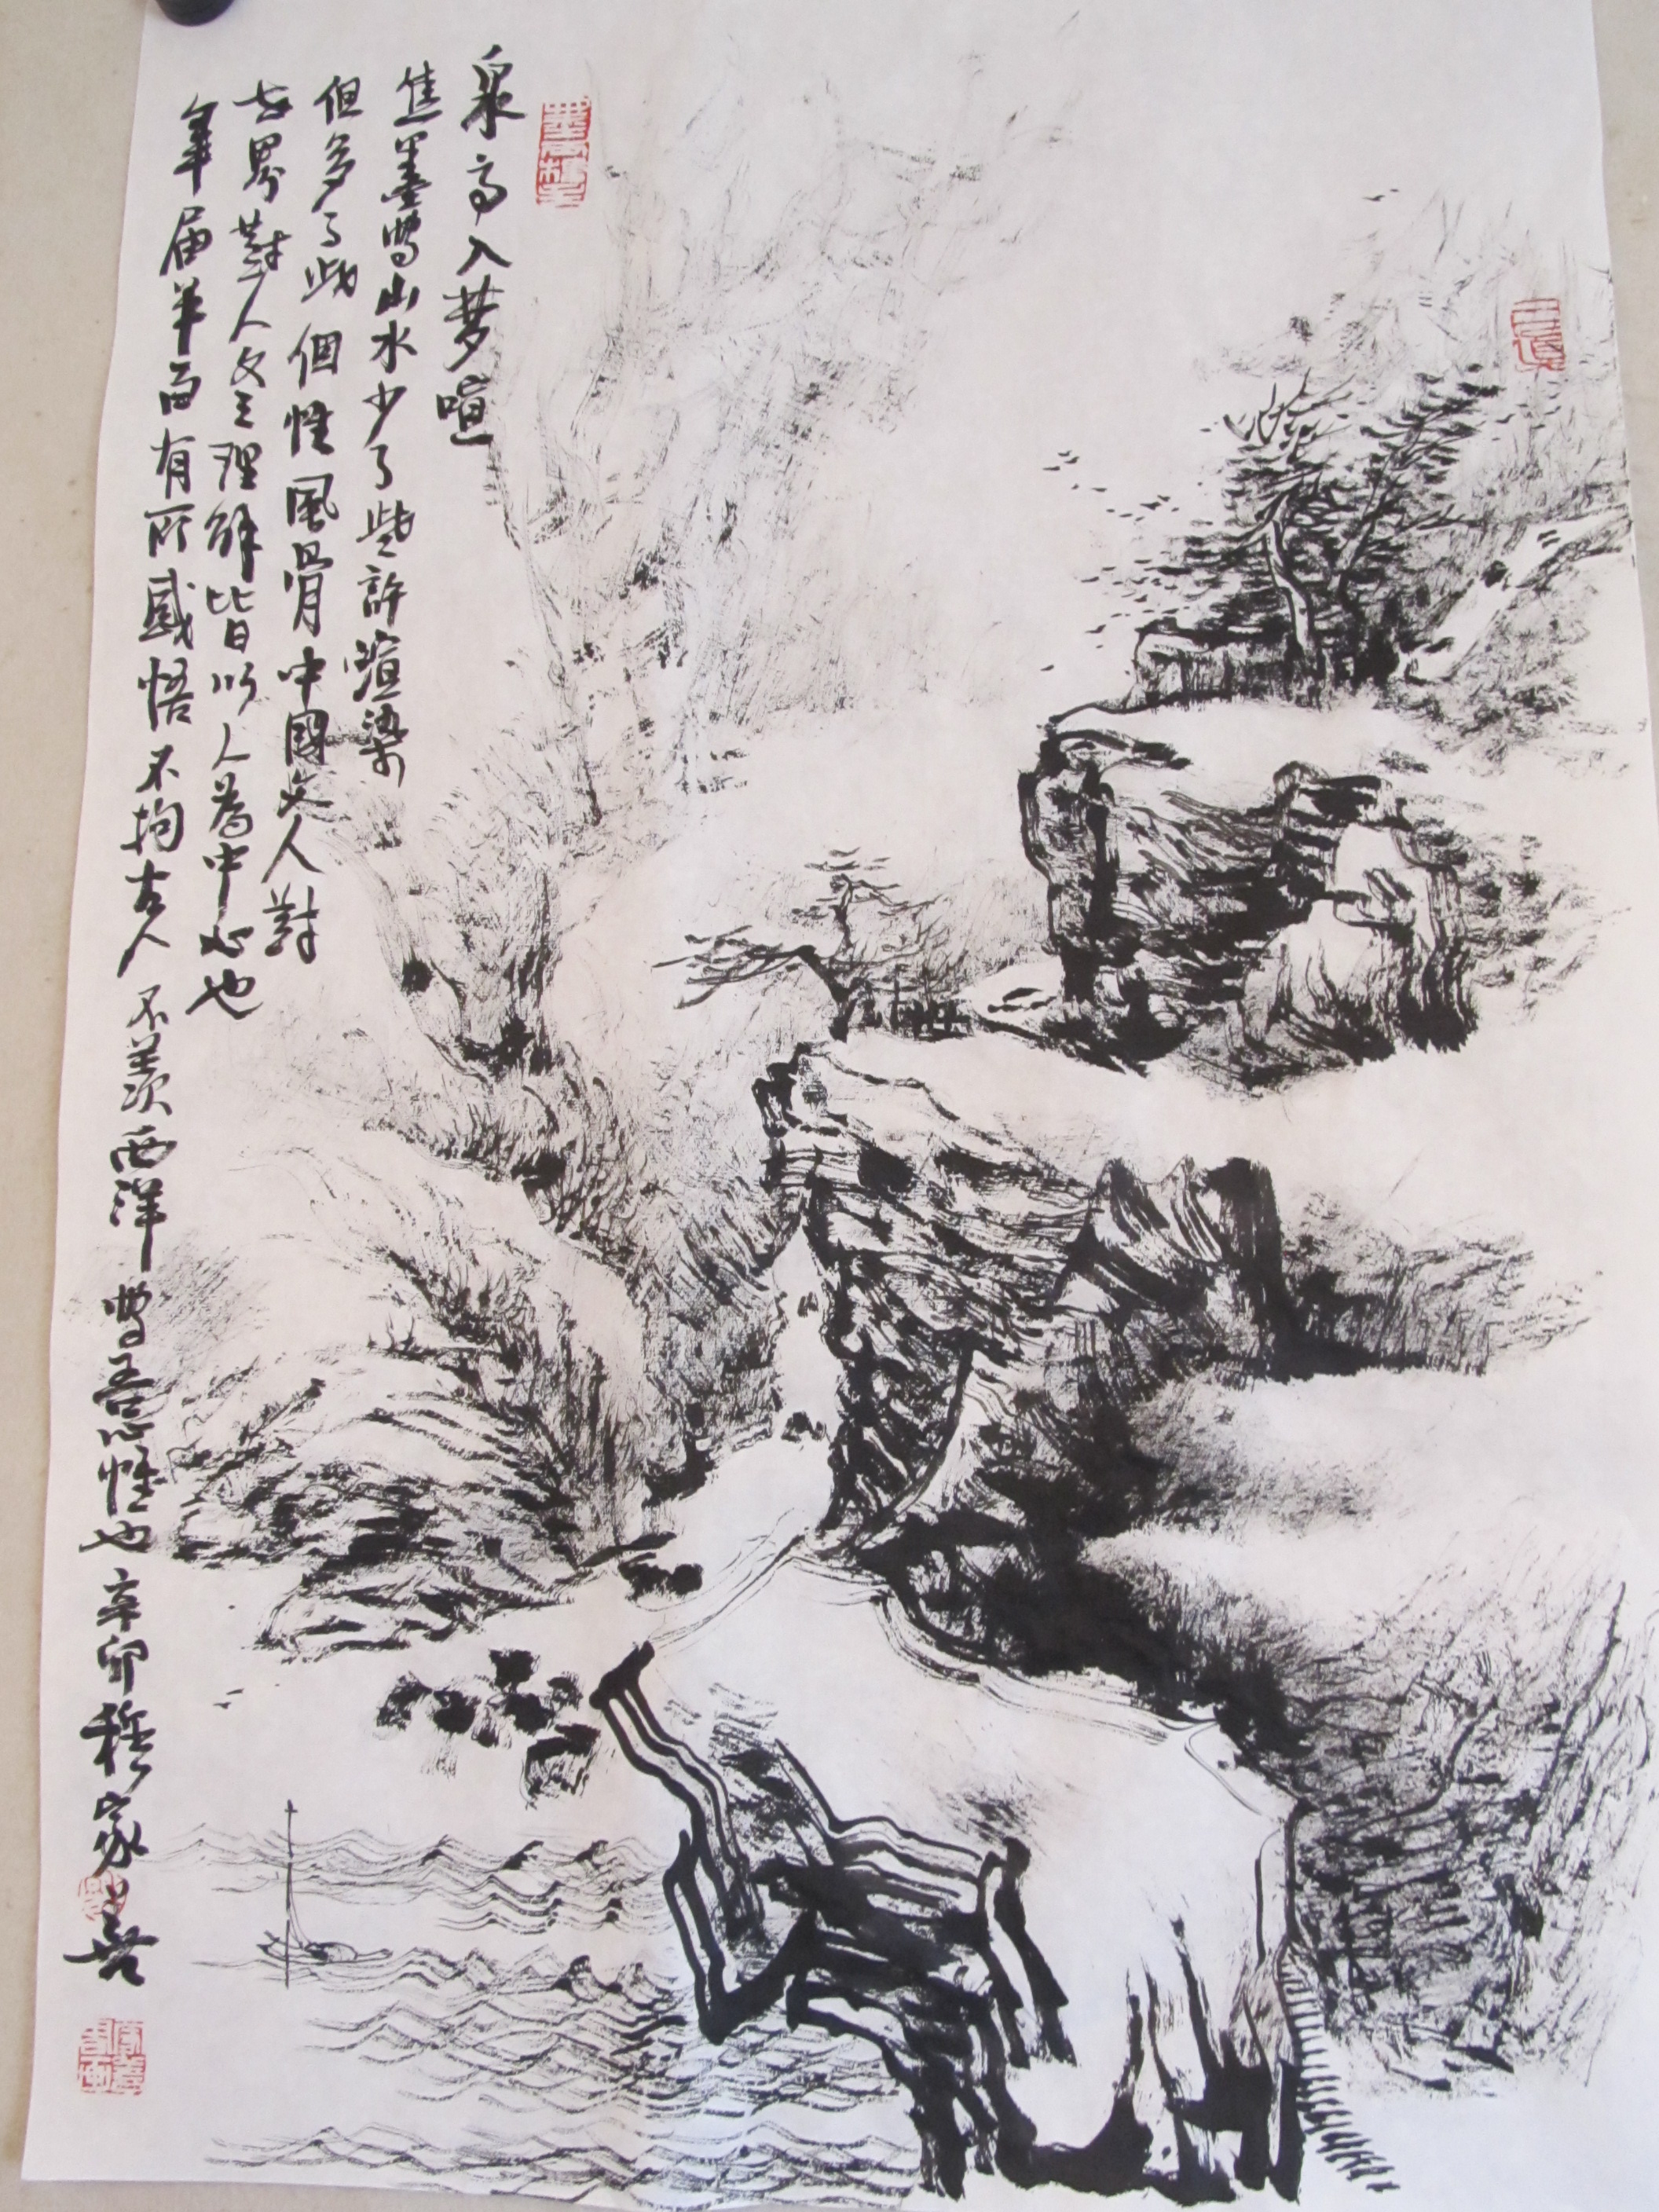 泉高入夢喧
焦墨寫山水少了些許渲染
但多了些個性風骨中國文人對
世界對人文之理解皆以人為中心也
年届半百有所感悟不拘古人不羨西洋寫吾心性也辛卯穆家善